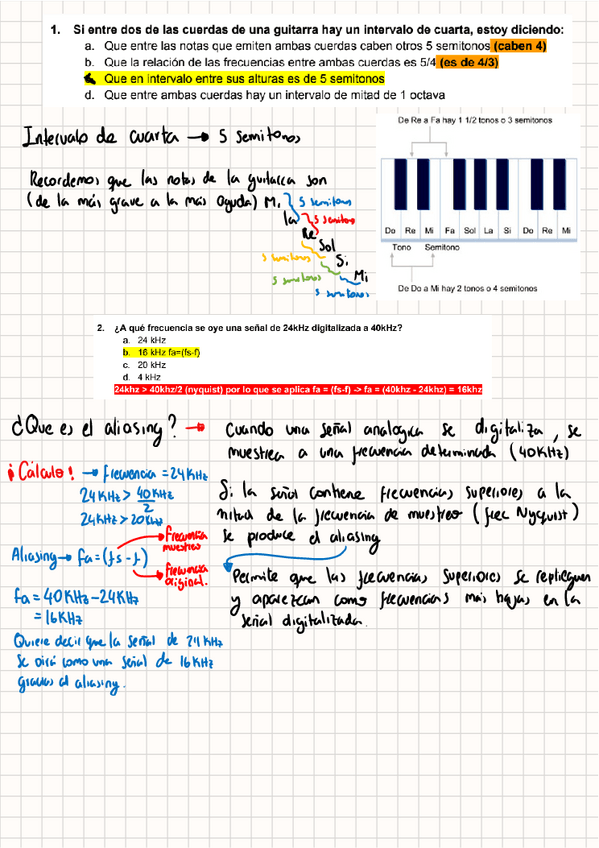 1. Si entre dos de las cuerdas de una guitarra hay un intervalo de cuarta, estoy diciendo:
a. Que entre las notas que emiten ambas cuerdas caben otros 5 semitonos (caben 4)
b. Que la relación de las frecuencias entre ambas cuerdas es 5/4 (es de 4/3)
Que en intervalo entre sus alturas es de 5 semitonos
d. Que entre ambas cuerdas hay un intervalo de mitad de 1 octava
Intervalo de cuarta → 5 semitonos
Recordemos que las notas de la guitarra son
(de la más grave a la más aguda) Mi
5 semitonos
La
5 semitonos
Re
Sol
5 semitonos
Si
5 semitonos
Mi
5 semitonos
De Re a Fa hay 1 1/2 tonos o 3 semitonos
Do Re Mi Fa Sol La Si Do Re Mi
Tono Semitono
De Do a Mi hay 2 tonos o 4 semitonos
2. ¿A qué frecuencia se oye una señal de 24kHz digitalizada a 40kHz?
a. 24 kHz
b. 16 kHz fa=(fs-f)
c. 20 kHz
d. 4 kHz
24khz > 40khz/2 (nyquist) por lo que se aplica fa = (fs-f) -> fa = (40khz - 24khz) = 16khz
¿Que es el aliasing? →
Cuando una señal analogica se digitaliza, se
muestrea a una frecuencia determinada (40KHz)
Si la señal contiene frecuencias superiores a la
mitad de la frecuencia de muestreo (frec Nyquist)
se produce el aliasing
Permite que las frecuencias superiores se replieguen
y aparezcan como frecuencias más bajas en la
señal digitalizada.
¡Cálculo! → frecuencia = 24KHz
24KHz > 40KHz/2
24KHz > 20KHz
Aliasing → fa = (fs - f)
Frecuencia
muestreo
Frecuencia
original.
fa = 40KHz - 24KHz
= 16KHz
Quiere decir que la señal de 24KHz
se oirá como una señal de 16KHz
gracias al aliasing.